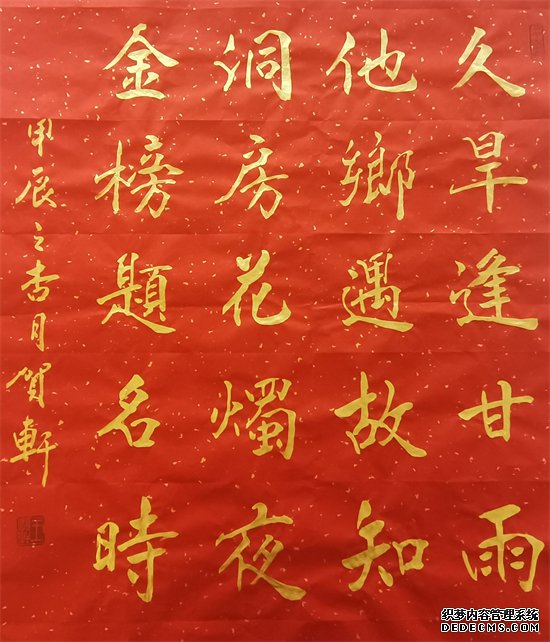 久旱逢甘雨
他鄉遇故知
洞房花燭夜
金榜題名時
甲辰之杏月賀軒
织梦内容管理系统
DEDECMS.COM